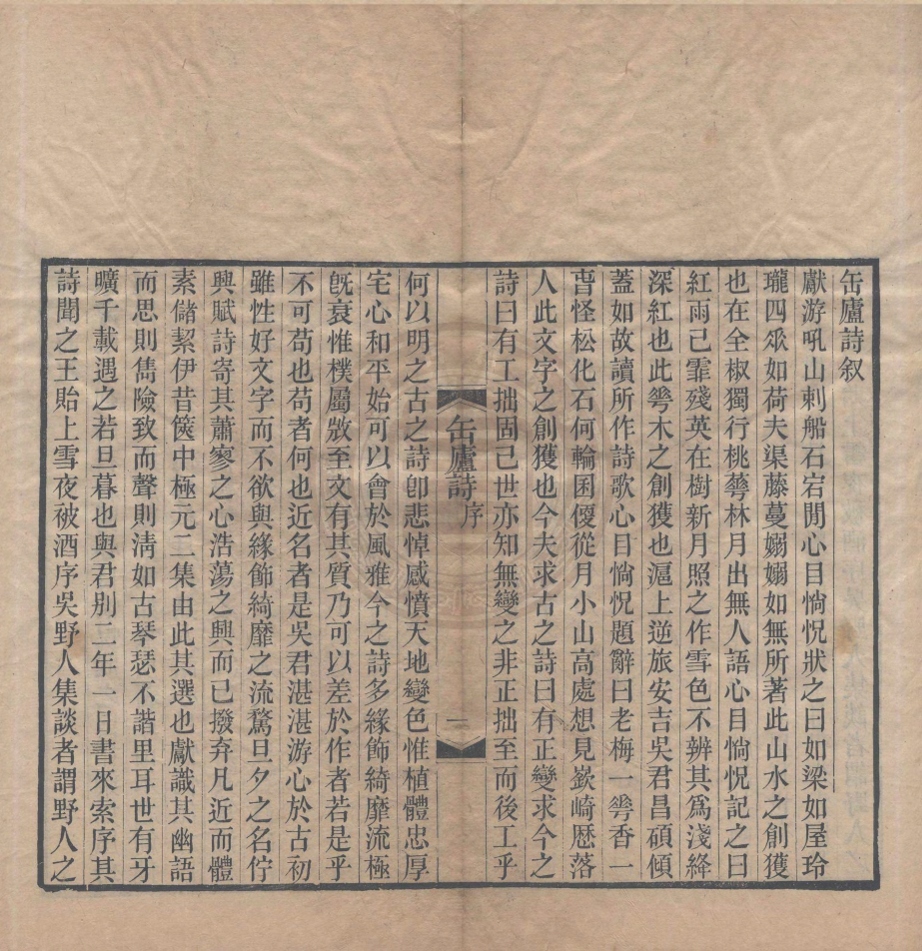 缶廬詩叙
獻游吼山刺船石宕閒心目惝怳狀之曰如梁如屋玲
瓏四㸚如荷夫渠藤蔓嫋嫋如無所著此山水之創獲
也在全椒獨行桃蕚林月出無人語心目惝怳記之曰
紅雨已霏殘英在樹新月照之作雪色不辨其爲淺絳
深紅也此㻎木之創獲也滬上逆旅安吉吳君昌碩傾
蓋如故讀所作詩歌心目惝怳題辭曰老梅一㻎香一
亯怪松化石何輪囷偃從月小山高處想見嶔崎歷落
人此文字之創獲也今夫求古之詩曰有正變求今之
詩曰有工拙固已世亦知無變之非正拙至而後工乎
缶廬詩 序
一
何以明之古之詩卽悲悼感憤天地變色惟植體忠厚
宅心和平始可以會於風雅今之詩多緣飾綺靡流極
旣衰惟樸屬㪇至文有其質乃可以差於作者若是乎
不可苟也苟者何也近名者是吳君湛湛游心於古初
雖性好文字而不欲與緣飾綺靡之流騖旦夕之名佇
興賦詩寄其蕭寥之心浩蕩之興而已撥弃凡近而體
素儲絜伊昔篋中極元二集由此其選也獻識其幽語
而思則雋險致而聲則淸如古琴瑟不諧里耳世有牙
曠千載遇之若旦暮也與君別二年一日書來索序其
詩聞之王貽上雪夜被酒序吳野人集談者謂野人之